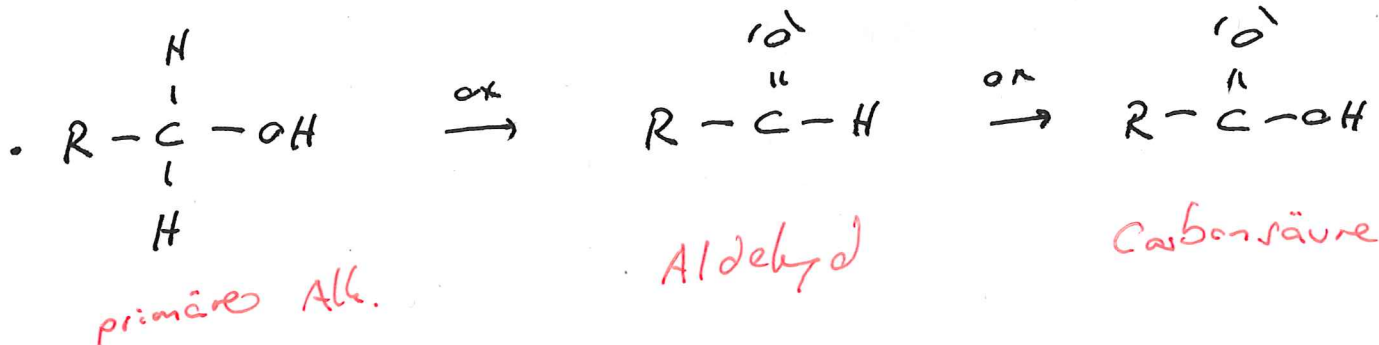 H (O) (O)
| || ||
. R - C - OH ox → R - C - H ox → R - C - OH
|
H
primäres Alk. Aldehyd Carbonsäure